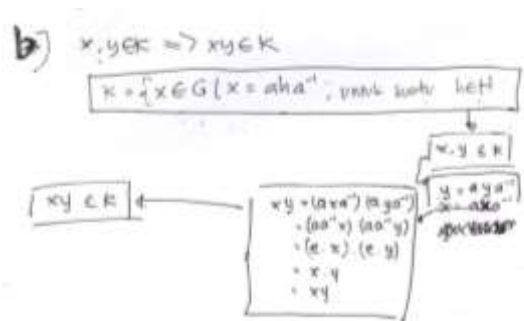 b) x, y ∈ K => xy ∈ K
K = {x ∈ G | x = aha⁻¹, untuk suatu h ∈ H
x, y ∈ K
y = aya⁻¹
x = axa⁻¹
xy = (axa⁻¹) (aya⁻¹)
= (aa⁻¹x) (aa⁻¹y)
= (e. x) . (e. y)
= x . y
= xy
xy ∈ K